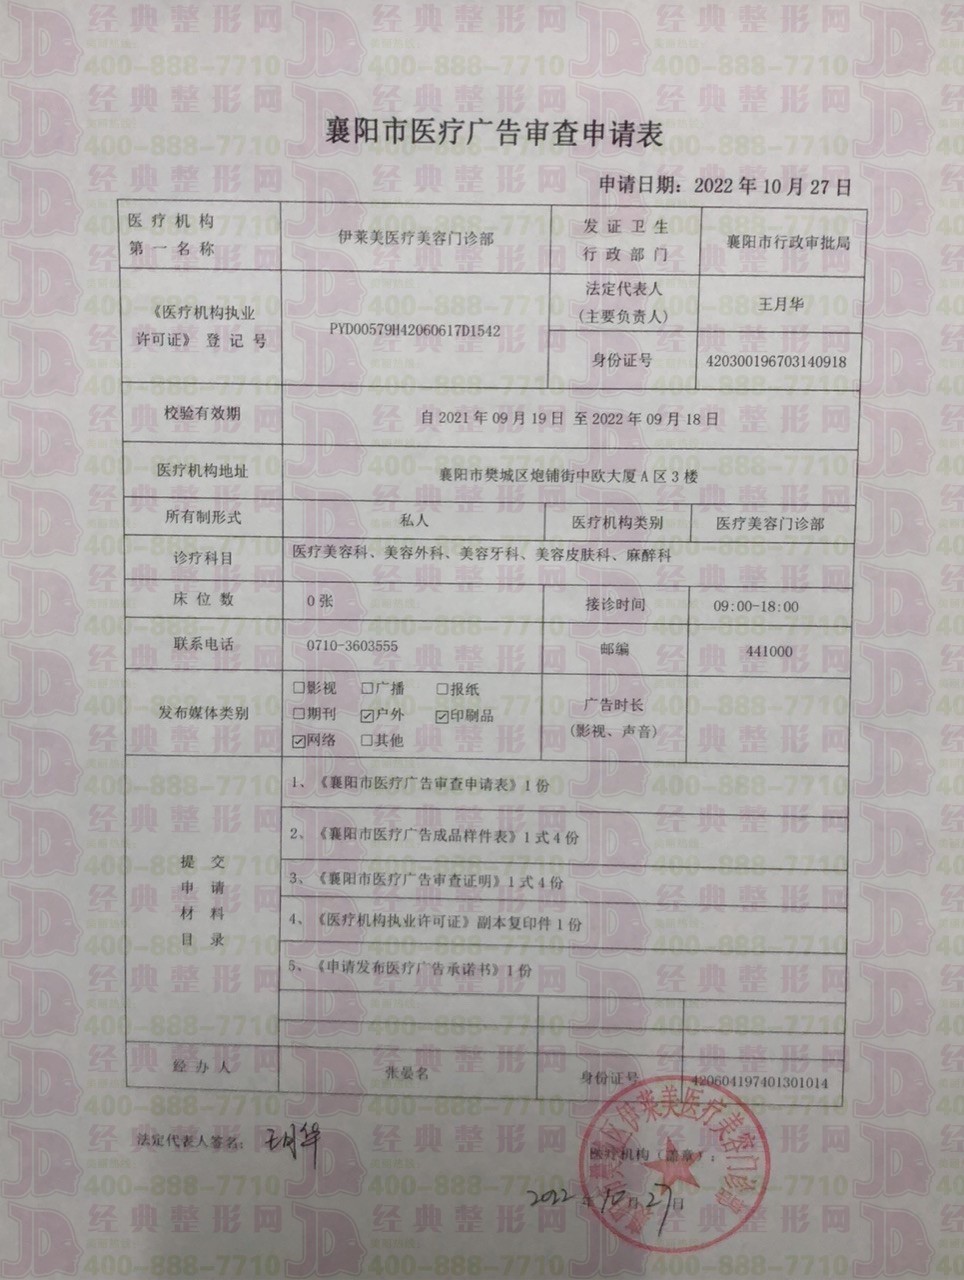 襄阳市医疗广告审查申请表
申请日期：2022年10月27日
医疗机构
第一名称
伊莱美医疗美容门诊部
发证卫生
行政部门
襄阳市行政审批局
《医疗机构执业
许可证》登记号
PYD00579H42060617D1542
法定代表人
(主要负责人)
王月华
身份证号
420300196703140918
校验有效期
自2021年09月19日 至2022年09月18日
医疗机构地址
襄阳市樊城区炮铺街中欧大厦A区3楼
所有制形式
私人
医疗机构类别
医疗美容门诊部
诊疗科目
医疗美容科、美容外科、美容牙科、美容皮肤科、麻醉科
床位数
0张
接诊时间
09:00-18:00
联系电话
0710-3603555
邮编
441000
发布媒体类别
☐影视 ☐广播 ☐报纸
☐期刊 ☑户外 ☑印刷品
☑网络 ☐其他
广告时长
(影视、声音)
提交
申请
材料
目录
1、《襄阳市医疗广告审查申请表》1份
2、《襄阳市医疗广告成品样件表》1式4份
3、《襄阳市医疗广告审查证明》1式4份
4、《医疗机构执业许可证》副本复印件1份
5、《申请发布医疗广告承诺书》1份
经办人
张晏名
身份证号
420604197401301014
法定代表人签名：王月华
医疗机构（盖章）：
2022年10月27日
伊莱美医疗美容门诊部
经典整形网
400-888-7710